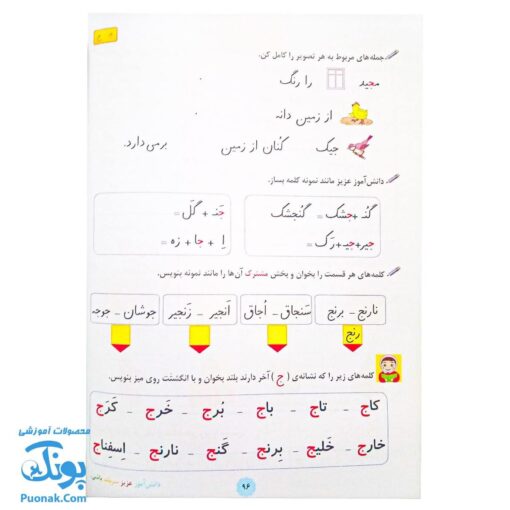 جمله‌های مربوط به هر تصویر را کامل کن.
مجید را رنگ .
از زمین دانه
جیک کنان از زمین برمی‌دارد.
دانش‌آموز عزیز مانند نمونه کلمه بساز.
گنـ + جشک = گنجشک
جَنـ + گَل =
جیر + جیـ + رَک =
اِ + جا + زه =
کلمه‌های هر قسمت را بخوان و بخش مشترک آن‌ها را مانند نمونه بنویس.
نارنج - برنج
سَنجاق - اُجاق
اَنجیر - زَنجیر
جوشان - جوجه
رنج
کلمه‌های زیر را که نشانه‌ی ( ج ) آخر دارند بلند بخوان و با انگشتت روی میز بنویس.
کاج - تاج - باج - بُرج - خَرج - کَرَج
خارج - خَلیج - بِرنج - گَنج - نارنج - اِسفِناج
۹۶
دانش‌آموز عزیز
محصولات آموزشی
پونک
Puonak.Com